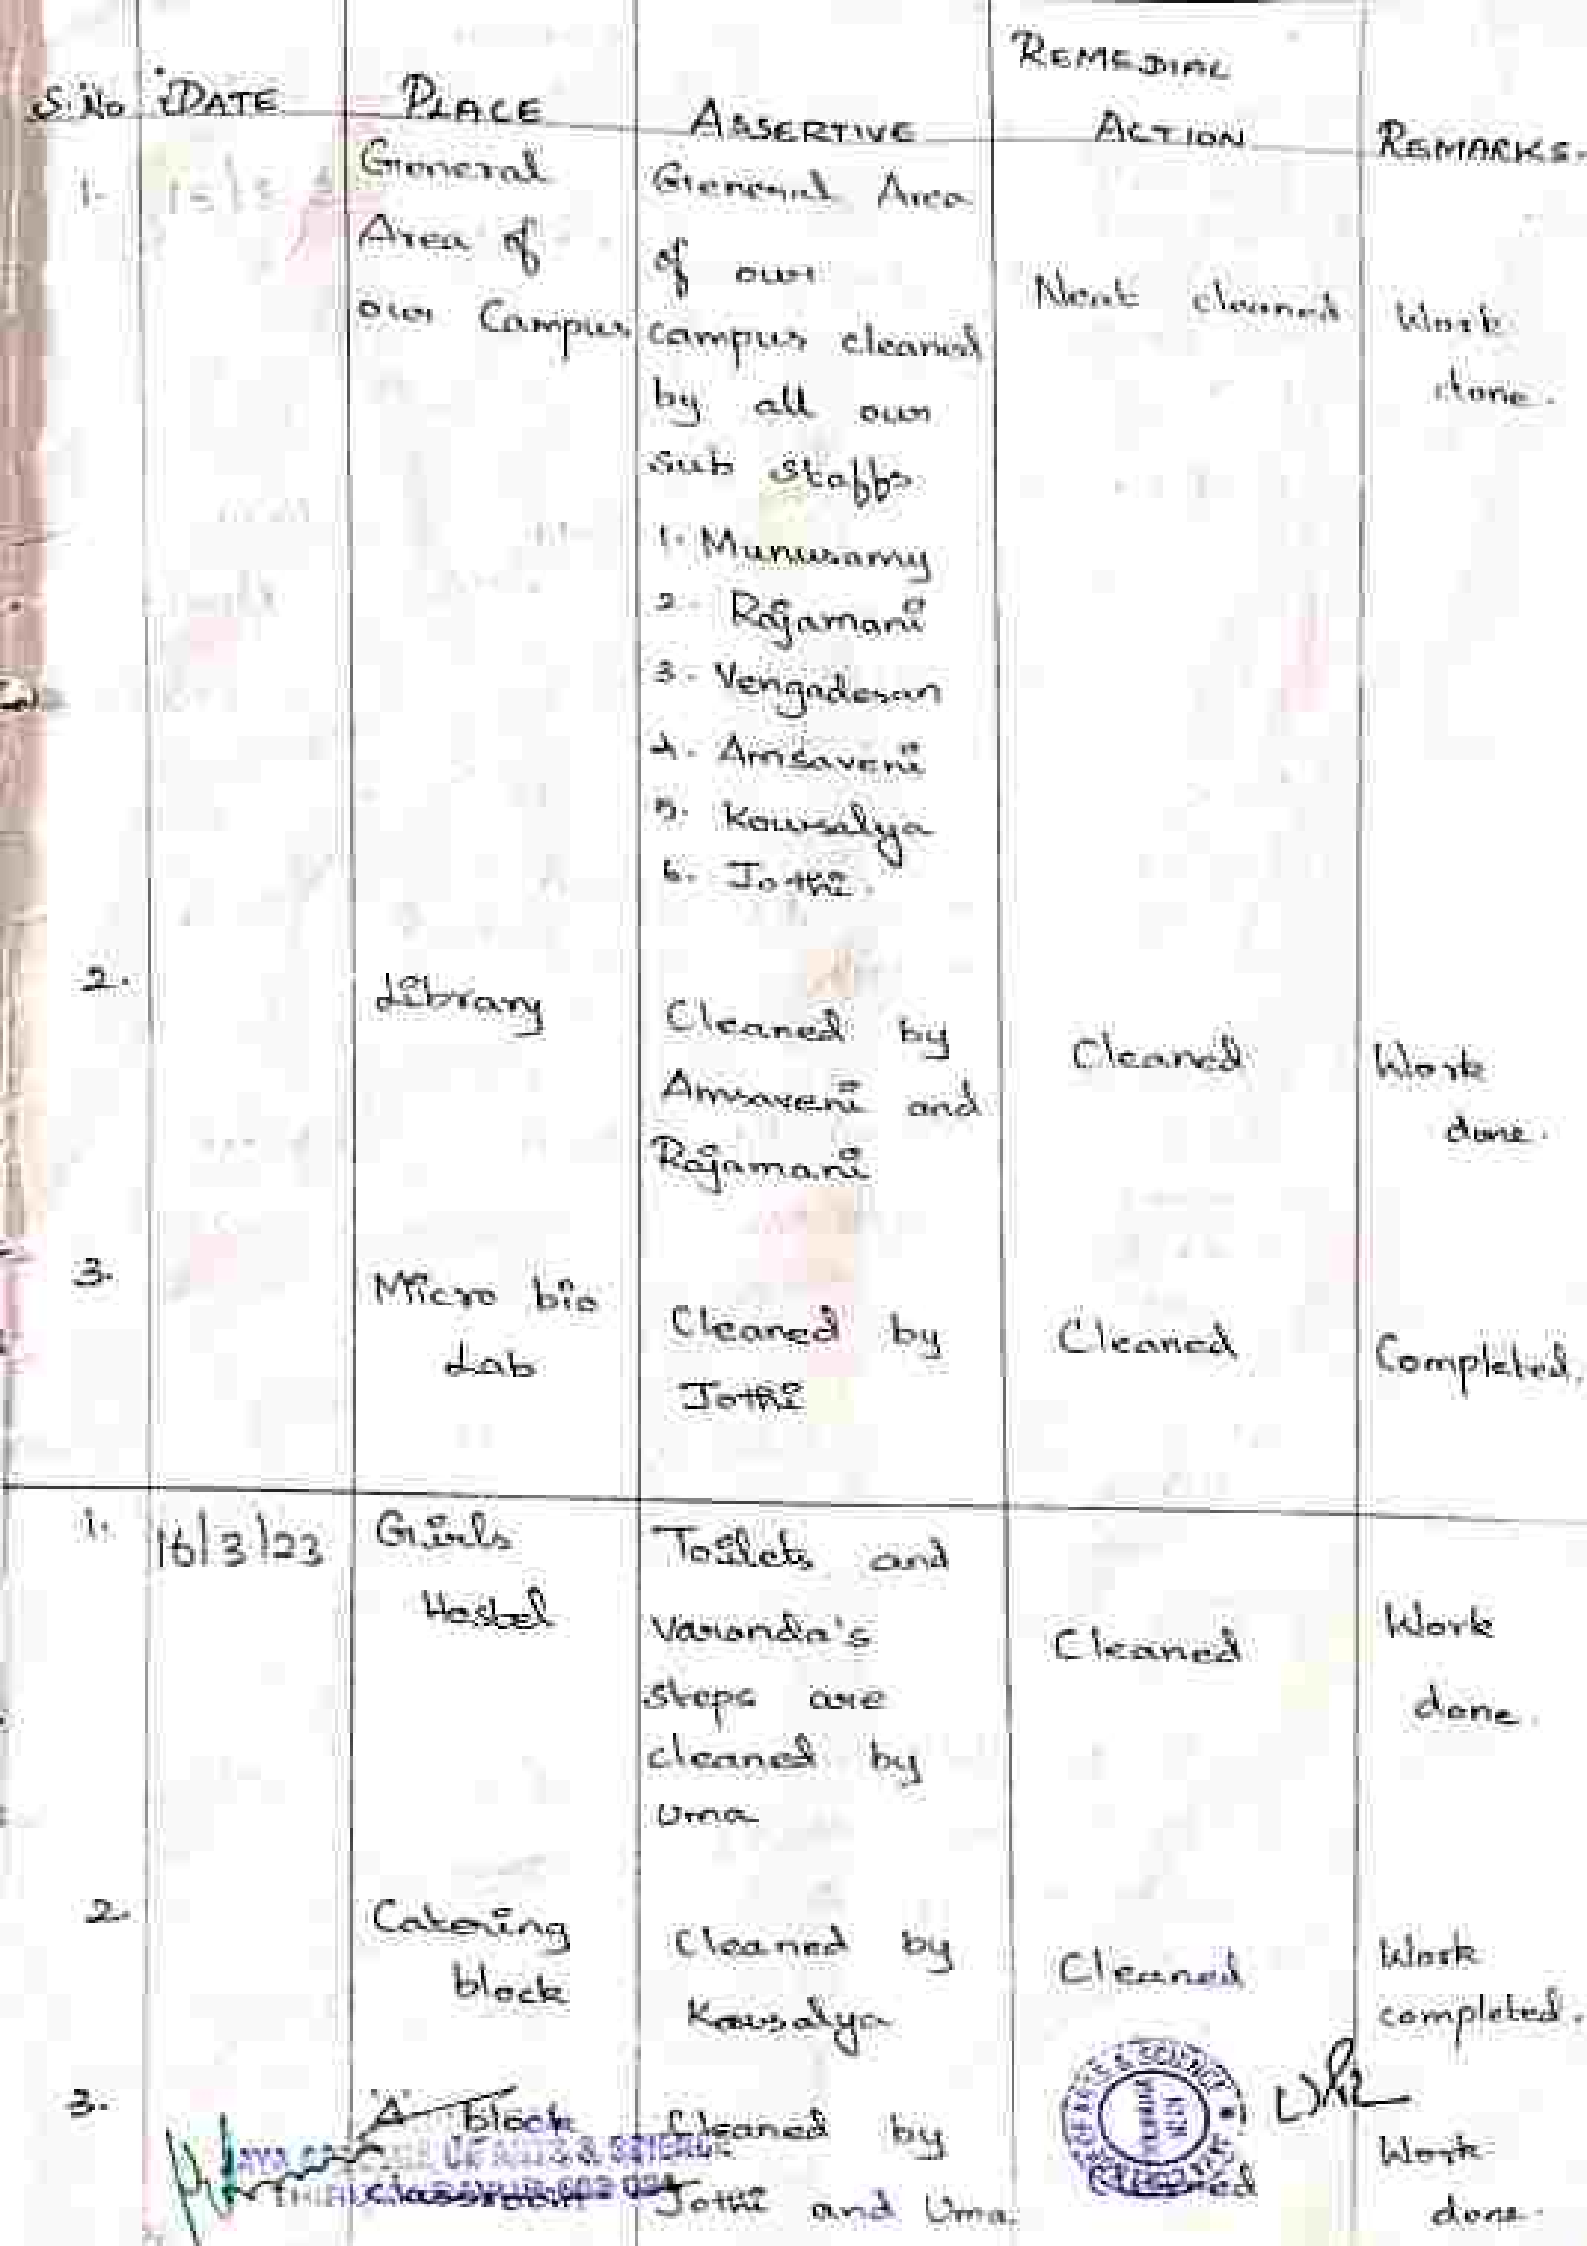 S.No DATE PLACE ASSERTIVE REMEDIAL ACTION REMARKS.
1.
General
Area of
our Campus
General Area
of our
campus cleaned
by all our
sub staffs
1. Munusamy
2. Rajamani
3. Vengadesan
4. Amsaveni
5. Kousalya
6. Jothi.
Neat cleaned
Work
done.
2.
Library
Cleaned by
Amsaveni and
Rajamani
Cleaned
Work
done.
3.
Micro bio
Lab
Cleaned by
Jothi
Cleaned
Completed.
1. 16/3/23
Girls
Hostel
Toilets and
Varanda's
steps are
cleaned by
Uma
Cleaned
Work
done.
2.
Catering
block
Cleaned by
Kousalya
Cleaned
Work
completed.
3.
'A' block
classroom
Cleaned by
Jothi and Uma.
Cleaned
Work
done.
OF ARTS & SCIENCE
ARTS & SCIENCE